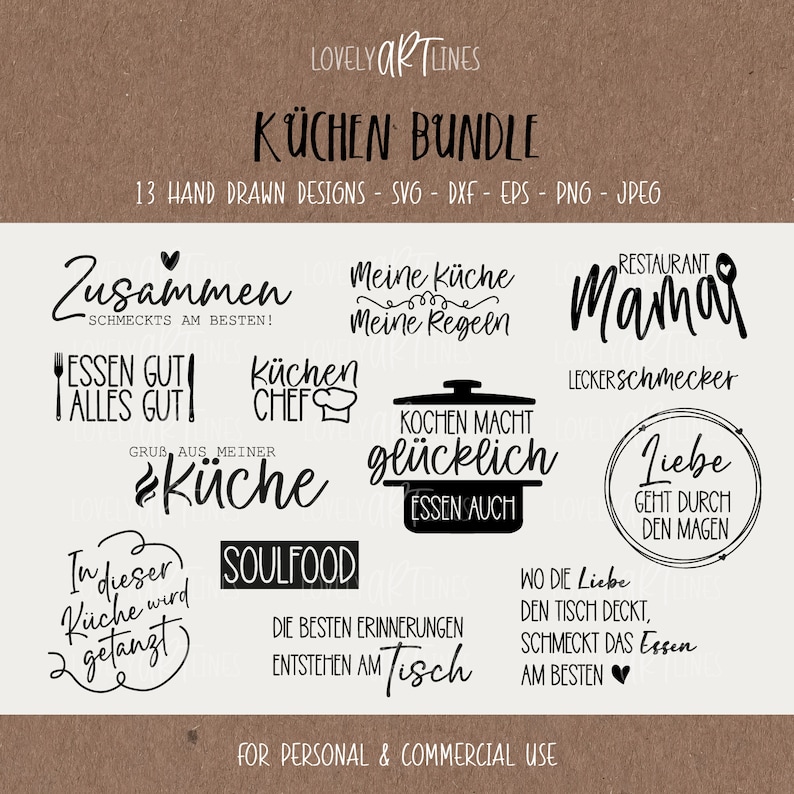 LOVELY ART LINES
KÜCHEN BUNDLE
13 HAND DRAWN DESIGNS - SVG - DXF - EPS - PNG - JPEG
Zusammen
SCHMECKTS AM BESTEN!
Meine Küche
Meine Regeln
RESTAURANT
Mama
ESSEN GUT
ALLES GUT
Küchen
CHEF
LECKERschmecker
KOCHEN MACHT
glücklich
ESSEN AUCH
GRUß AUS MEINER
Küche
Liebe
GEHT DURCH
DEN MAGEN
In dieser
Küche wird
getanzt
SOULFOOD
DIE BESTEN ERINNERUNGEN
ENTSTEHEN AM Tisch
WO DIE Liebe
DEN TISCH DECKT,
SCHMECKT DAS Essen
AM BESTEN
FOR PERSONAL & COMMERCIAL USE